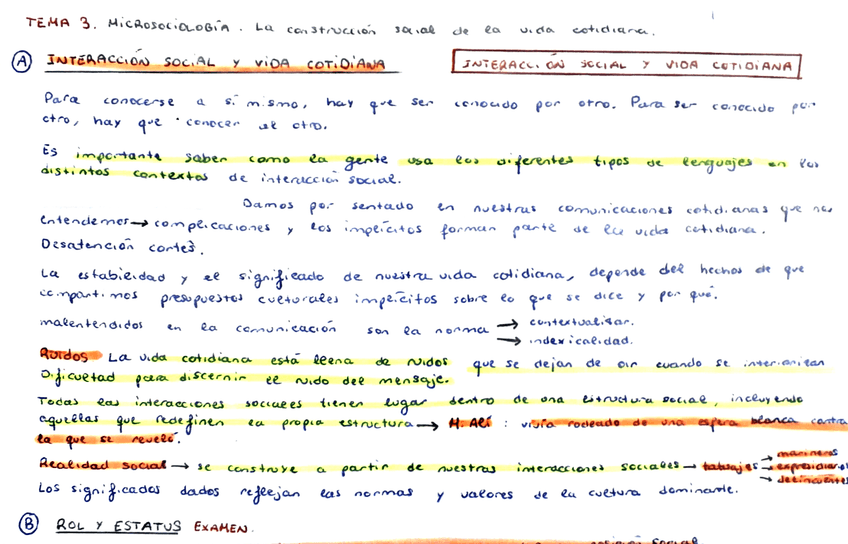 TEMA 3. MICROSOCIOLOGÍA. La construcción social de la vida cotidiana.
A INTERACCIÓN SOCIAL Y VIDA COTIDIANA
INTERACCIÓN SOCIAL Y VIDA COTIDIANA
Para conocerse a sí mismo, hay que ser conocido por otro. Para ser conocido por
otro, hay que conocer al otro.
Es importante saber como la gente usa los diferentes tipos de lenguajes en los
distintos contextos de interacción social.
Damos por sentado en nuestras comunicaciones cotidianas que nos
entendemos → complicaciones y los implícitos forman parte de la vida cotidiana.
Desatención cortés.
La estabilidad y el significado de nuestra vida cotidiana, depende del hechos de que
compartimos presupuestos culturales implícitos sobre lo que se dice y por qué.
malentendidos en la comunicación son la norma → contextualizar.
→ indexicalidad.
Ruidos La vida cotidiana está llena de ruidos que se dejan de oir cuando se interiorizan
Dificultad para discernir el ruido del mensaje.
Todas las interacciones sociales tienen lugar dentro de una estructura social, incluyendo
aquellas que redefinen la propia estructura → M. Alí : vivía rodeado de una esfera blanca contra
la que se reveló.
Realidad social → se construye a partir de nuestras interacciones sociales → tatuajes → marineros
→ expresidiarios
→ delincuentes
Los significados dados reflejan las normas y valores de la cultura dominante.
B ROL Y ESTATUS EXAMEN.